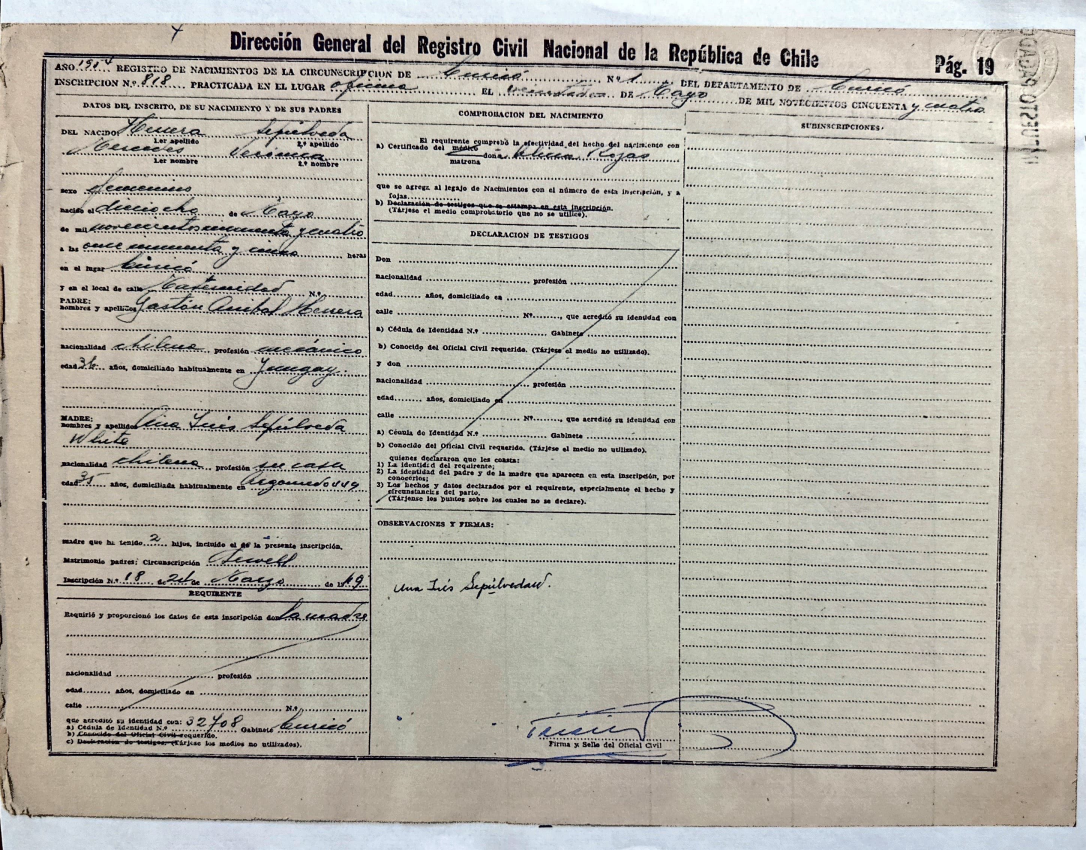 Dirección General del Registro Civil Nacional de la República de Chile
Pág. 19
AÑO 1954 REGISTRO DE NACIMIENTOS DE LA CIRCUNSCRIPCION DE Curicó N.º 1 DEL DEPARTAMENTO DE Curicó
INSCRIPCION N.º 818 PRACTICADA EN EL LUGAR oficina EL veintidos DE Mayo DE MIL NOVECIENTOS CINCUENTA y cuatro
DATOS DEL INSCRITO, DE SU NACIMIENTO Y DE SUS PADRES
DEL NACIDO Herrera Sepúlveda
1.er apellido 2.º apellido
Mercedes Verónica
1.er nombre 2.º nombre
sexo femenino
nació el dieciocho de Mayo
de mil novecientos cincuenta y cuatro
a las once cincuenta y cinco horas
en el lugar Curicó
y en el local de calle Maternidad N.º
PADRE:
nombres y apellidos Gastón Anibal Herrera
nacionalidad chilena profesión mecánico
edad 36 años, domiciliado habitualmente en Yungay
MADRE:
nombres y apellidos Ana Inés Sepúlveda
White
nacionalidad chilena profesión su casa
edad 35 años, domiciliada habitualmente en Argomedo
madre que ha tenido 2 hijos, incluído el de la presente inscripción.
Matrimonio padres: Circunscripción Sewell
Inscripción N.º 18 de 24 de Marzo de 1949
REQUIRENTE
Requirió y proporcionó los datos de esta inscripción don la madre
nacionalidad profesión
edad años, domiciliado en
calle N.º
que acreditó su identidad con: 32708
a) Cédula de Identidad N.º Gabinete Curicó
b) Conocido del Oficial Civil requerido.
c) Declaración de testigos. (Tárjese los medios no utilizados).
COMPROBACION DEL NACIMIENTO
El requirente comprobó la efectividad del hecho del nacimiento con
a) Certificado del médico doña Elena Rojas
matrona
que se agrega al legajo de Nacimientos con el número de esta inscripción, y a
fojas
b) Declaración de testigos que se estampa en esta inscripción.
(Tárjese el medio comprobatorio que no se utilice).
DECLARACION DE TESTIGOS
Don
nacionalidad profesión
edad años, domiciliado en
calle Nº , que acreditó su identidad con
a) Cédula de Identidad N.º Gabinete
b) Conocido del Oficial Civil requerido. (Tárjese el medio no utilizado).
y don
nacionalidad profesión
edad años, domiciliado en
calle Nº , que acreditó su identidad con
a) Cédula de Identidad N.º Gabinete
b) Conocido del Oficial Civil requerido. (Tárjese el medio no utilizado).
quienes declararon que les consta:
1) La identidad del requirente;
2) La identidad del padre y de la madre que aparecen en esta inscripción, por
conocerlos;
3) Los hechos y datos declarados por el requirente, especialmente el hecho y
circunstancias del parto.
(Tárjense los puntos sobre los cuales no se declare).
OBSERVACIONES Y FIRMAS:
Ana Inés Sepúlveda W.
Firma y Sello del Oficial Civil
SUBINSCRIPCIONES